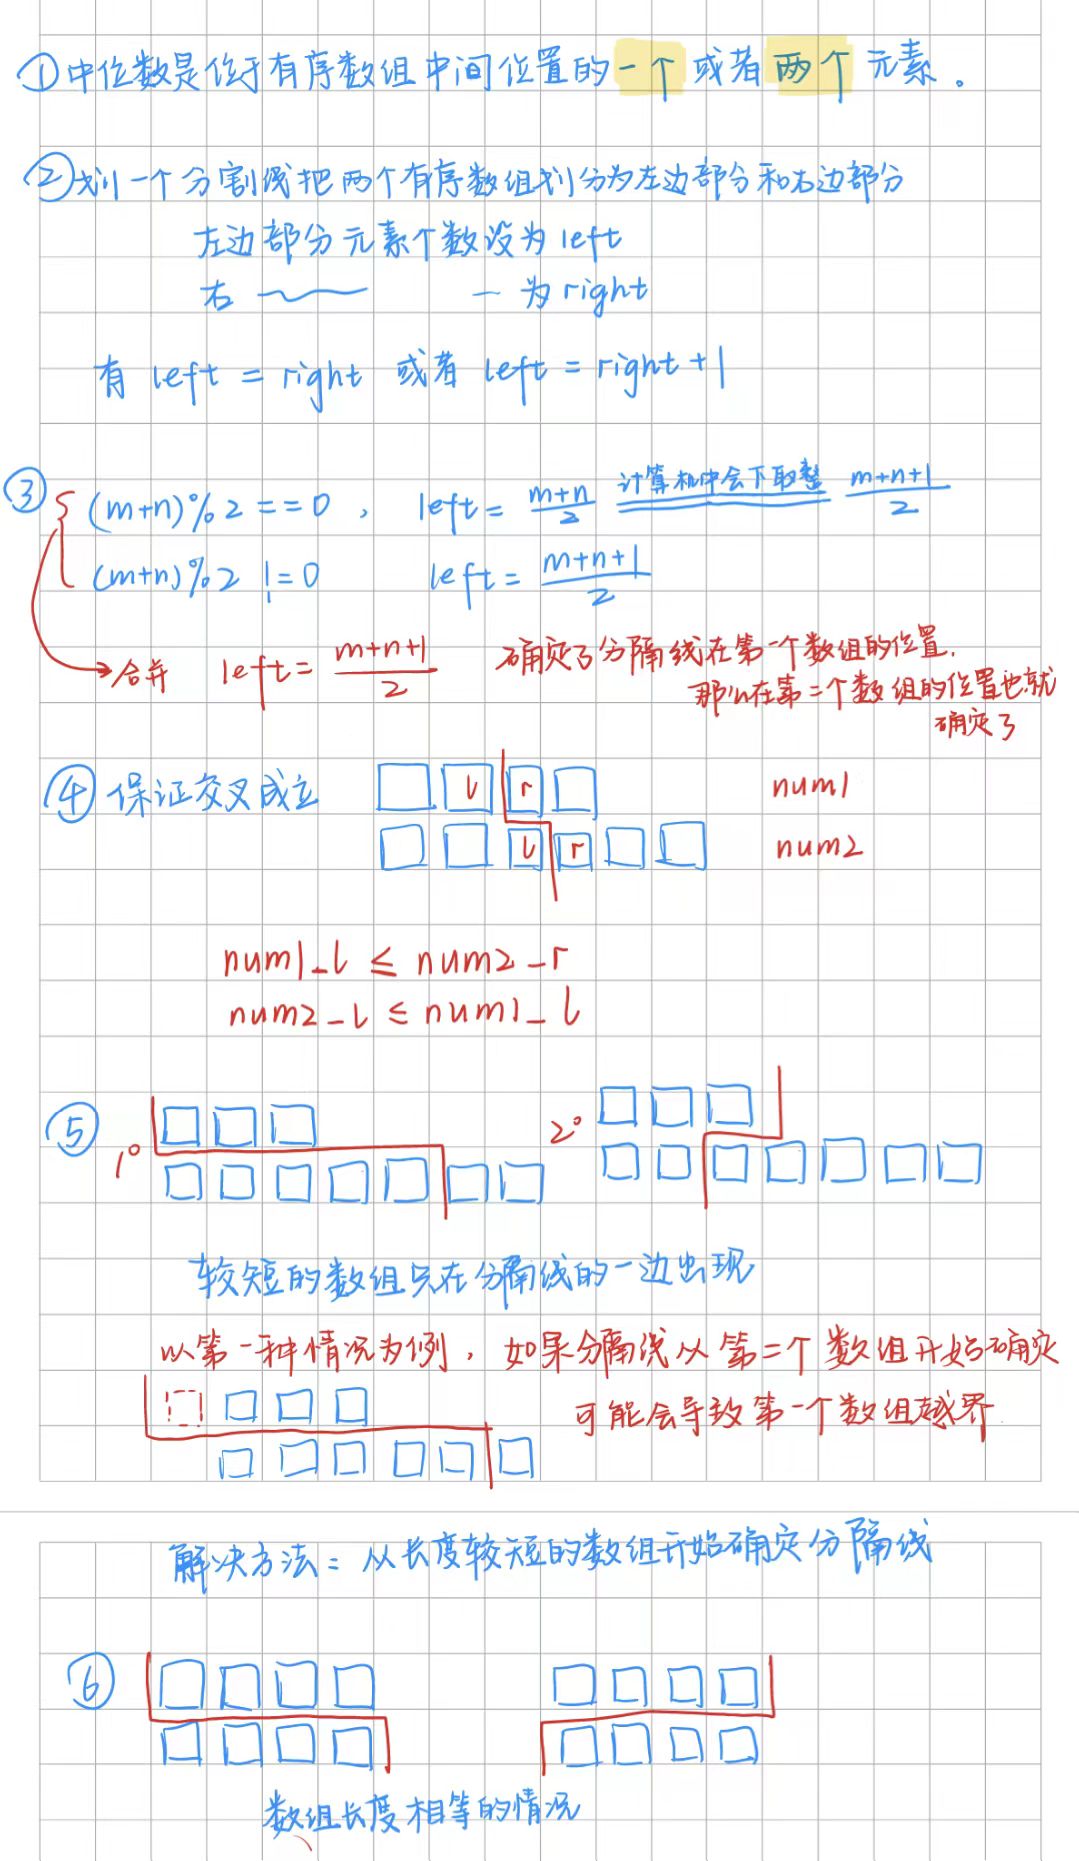 ①中位数是位于有序数组中间位置的一个或者两个元素。
②划一个分割线把两个有序数组划分为左边部分和右边部分
左边部分元素个数设为left
右 一 为right
有 left = right 或者 left = right + 1
③ (m+n)%2 == 0 , left = m+n/2 计算机中会下取整 m+n+1/2
(m+n)%2 != 0 left = m+n+1/2
合并 left = m+n+1/2 确定了分隔线在第一个数组的位置,
那么在第二个数组的位置也就
确定了
④ 保证交叉成立 l r num1
l r num2
num1_l ≤ num2_r
num2_l ≤ num1_l
⑤ 1° 2°
较短的数组只在分隔线的一边出现
以第一种情况为例, 如果分隔线从第二个数组开始确定
可能会导致第一个数组越界
解决方法: 从长度较短的数组开始确定分隔线
⑥
数组长度相等的情况